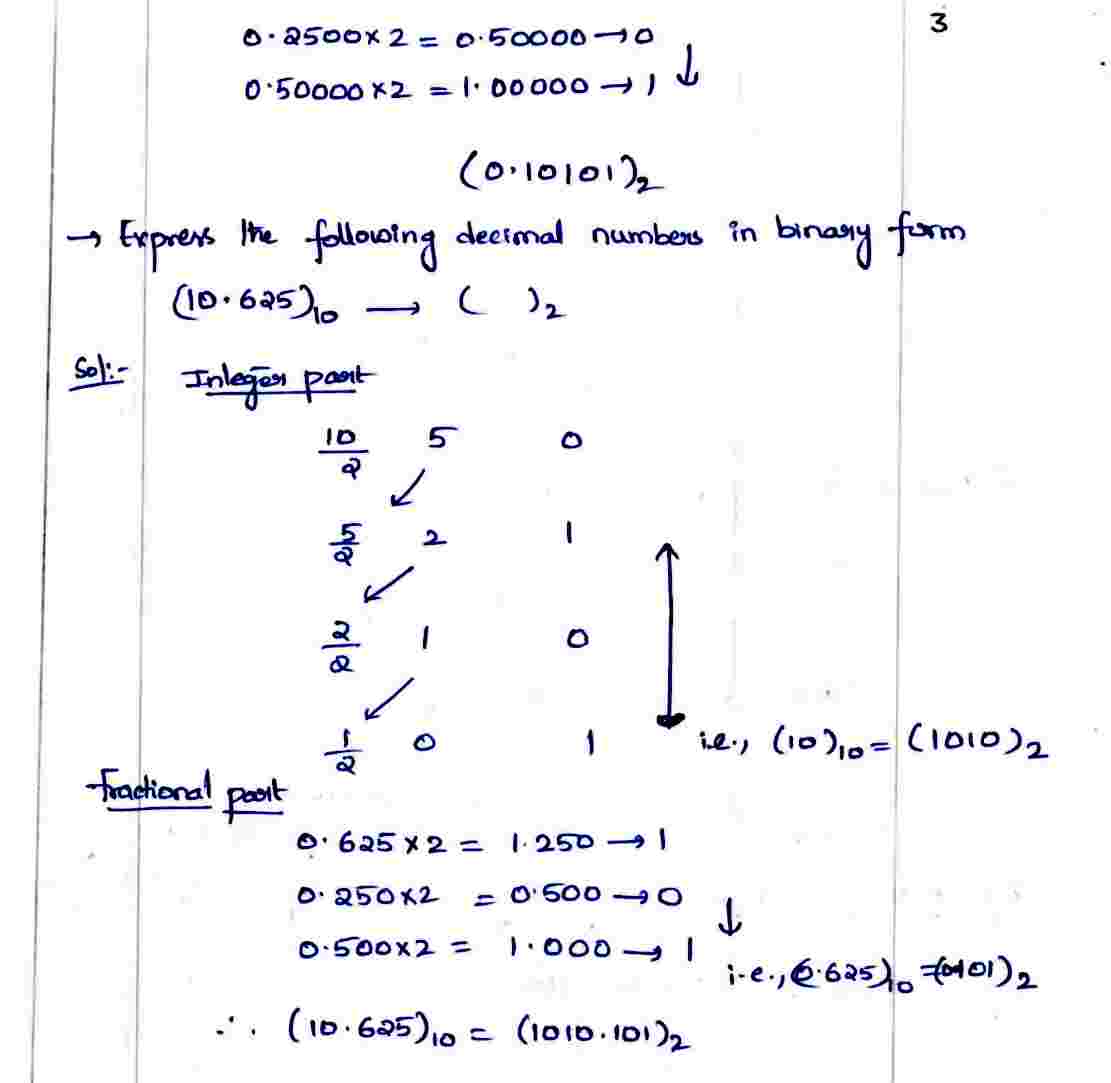 3
0.2500×2 = 0.50000→0
0.50000×2 = 1.00000→1 ↓
(0.10101)₂
→ Express the following decimal numbers in binary form
(10.625)₁₀ → ( )₂
Sol:- Integer part
10/2 5 0
5/2 2 1
2/2 1 0
1/2 0 1 i.e., (10)₁₀ = (1010)₂
fractional part
0.625×2 = 1.250→1
0.250×2 = 0.500→0
0.500×2 = 1.000→1 ↓
i.e., (0.625)₁₀ = (0.101)₂
∴ (10.625)₁₀ = (1010.101)₂